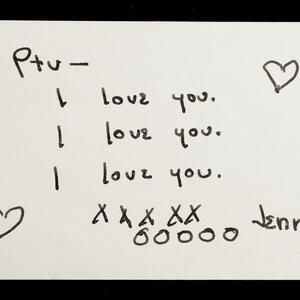 Ptu —
I love you.
I love you.
I love you.
X X X X X
O O O O O